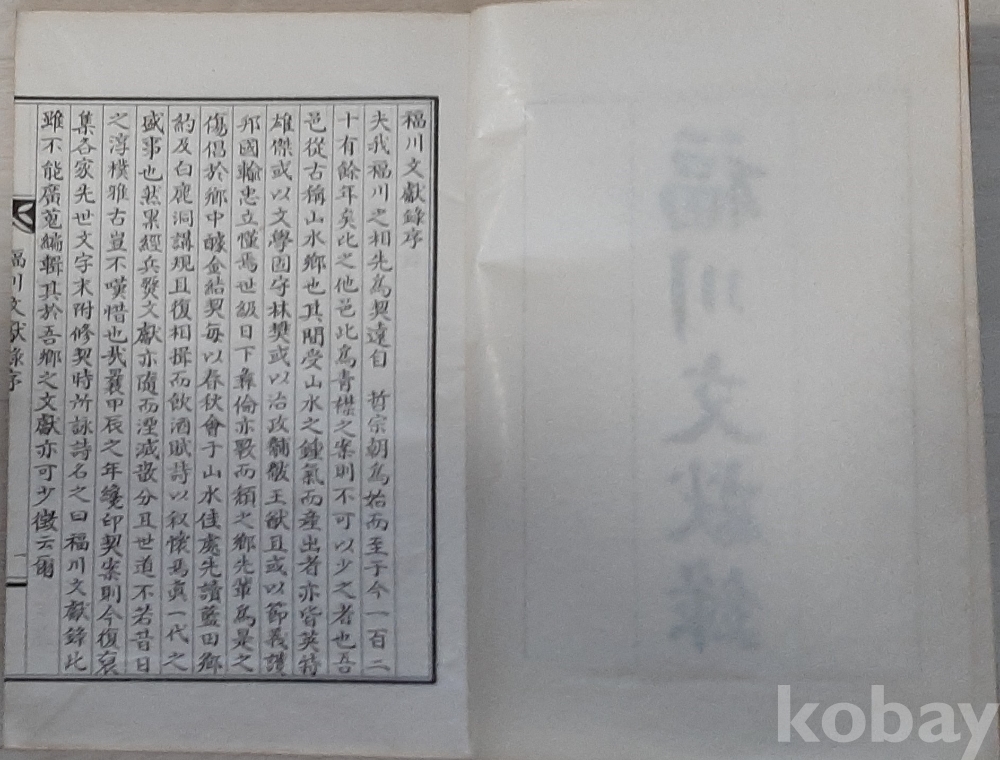 福川文獻錄
福川文獻錄序
夫我福川之相先為契遠自 哲宗朝為始而至于今一百二
十有餘年矣比之他邑此為青襟之案則不可以少之者也吾
邑從古稱山水鄉也其間受山水之鍾氣而產出者亦皆英特
雄傑或以文學固守林樊或以治政黼黻王猷且或以節義讚
邦國輸忠立慬焉世級日下彝倫亦斁而頹之鄉先輩為是之
傷倡於鄉中醵金結契每以春秋會于山水佳處先讀藍田鄉
約及白鹿洞講規且復相揖而飲酒賦詩以叙懷焉眞一代之
盛事也然累經兵燹文獻亦隨而湮滅散分且世道不若昔日
之淳樸雅古豈不嘆惜也哉曩甲辰之年纔印契案則今復裒
集各家先世文字末附修契時所詠詩名之曰福川文獻錄此
雖不能廣蒐編輯其於吾鄉之文獻亦可少徵云爾
福川文獻錄序
一
kobay